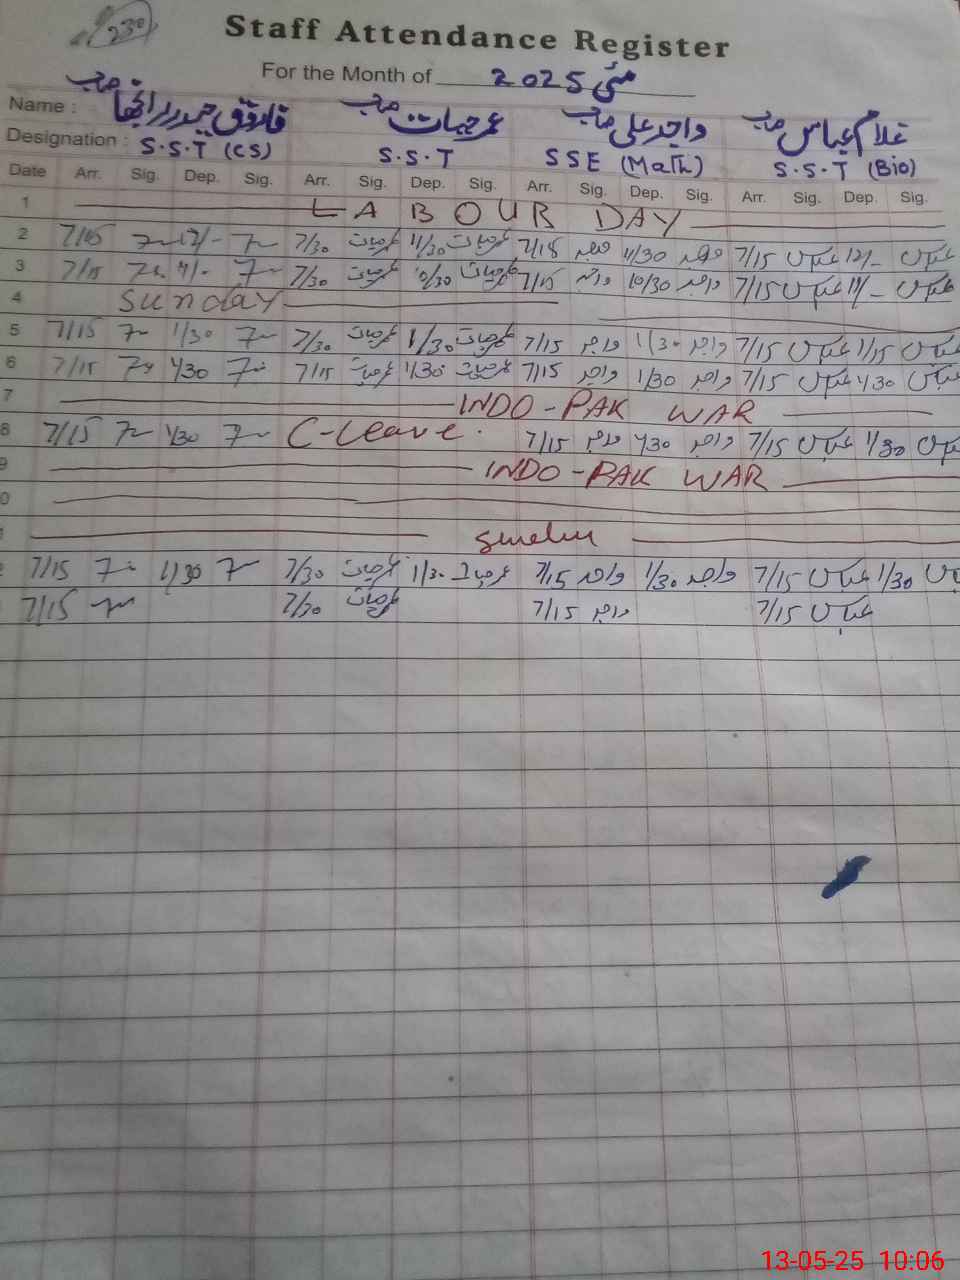 230
Staff Attendance Register
For the Month of مئی 2025
Name : فاروق حیدر رانجھا صاحب عمر حیات صاحب واجد علی صاحب غلام عباس صاحب
Designation : S.S.T (CS) S.S.T SSE (Math) S.S.T (Bio)
Date Arr. Sig. Dep. Sig. Arr. Sig. Dep. Sig. Arr. Sig. Dep. Sig. Arr. Sig. Dep. Sig.
1 LABOUR DAY
2 7/15 12/- 7/30 عمرحیات 11/30 عمرحیات 7/15 واجد 11/30 واجد 7/15 عباس 12/- عباس
3 7/15 11/- 7/30 عمرحیات 10/30 عمرحیات 7/15 واجد 10/30 واجد 7/15 عباس 11/- عباس
4 Sunday
5 7/15 1/30 7/30 عمرحیات 1/30 عمرحیات 7/15 واجد 1/30 واجد 7/15 عباس 1/15 عباس
6 7/15 1/30 7/15 عمرحیات 1/30 عمرحیات 7/15 واجد 1/30 واجد 7/15 عباس 1/30 عباس
7 INDO-PAK WAR
8 7/15 1/30 C-Leave. 7/15 واجد 1/30 واجد 7/15 عباس 1/30 عباس
9 INDO-PAK WAR
0
7/15 1/30 7/30 عمرحیات 1/30 عمرحیات 7/15 واجد 1/30 واجد 7/15 عباس 1/30
7/15 7/30 عمرحیات 7/15 واجد 7/15 عباس
13-05-25 10:06